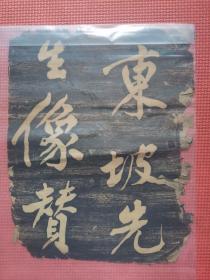 東坡先
生像贊